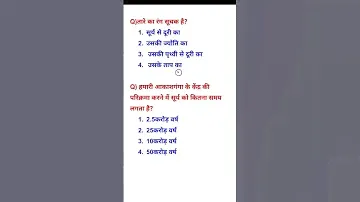 Q)तारे का रंग सूचक है?
1. सूर्य से दूरी का
2. उसकी ज्योति का
3. उसकी पृथ्वी से दूरी का
4. उसके ताप का
Q) हमारी आकाशगंगा के केंद्र की
परिक्रमा करने में सूर्य को कितना समय
लगता है?
1. 2.5करोड़ वर्ष
2. 25करोड़ वर्ष
3. 10करोड़ वर्ष
4. 50करोड़ वर्ष